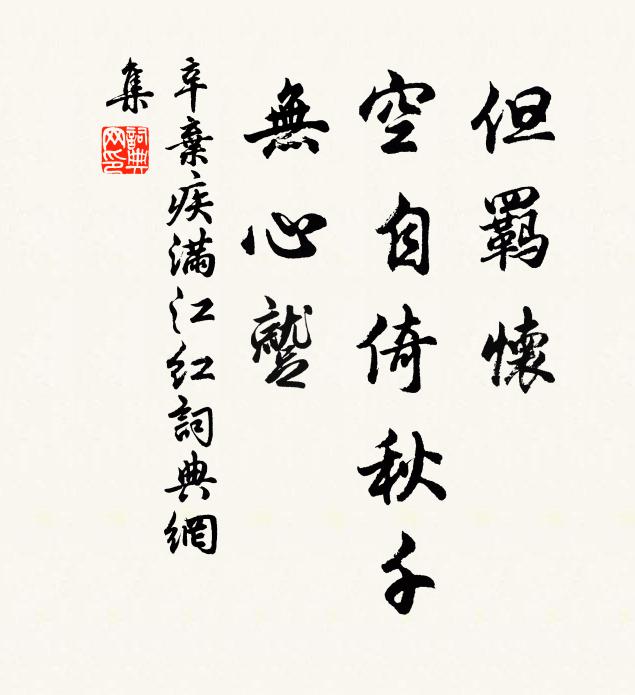 但羈懷
空自倚秋千
無心蹵
辛棄疾滿江紅詞典網
集
詞典
网印